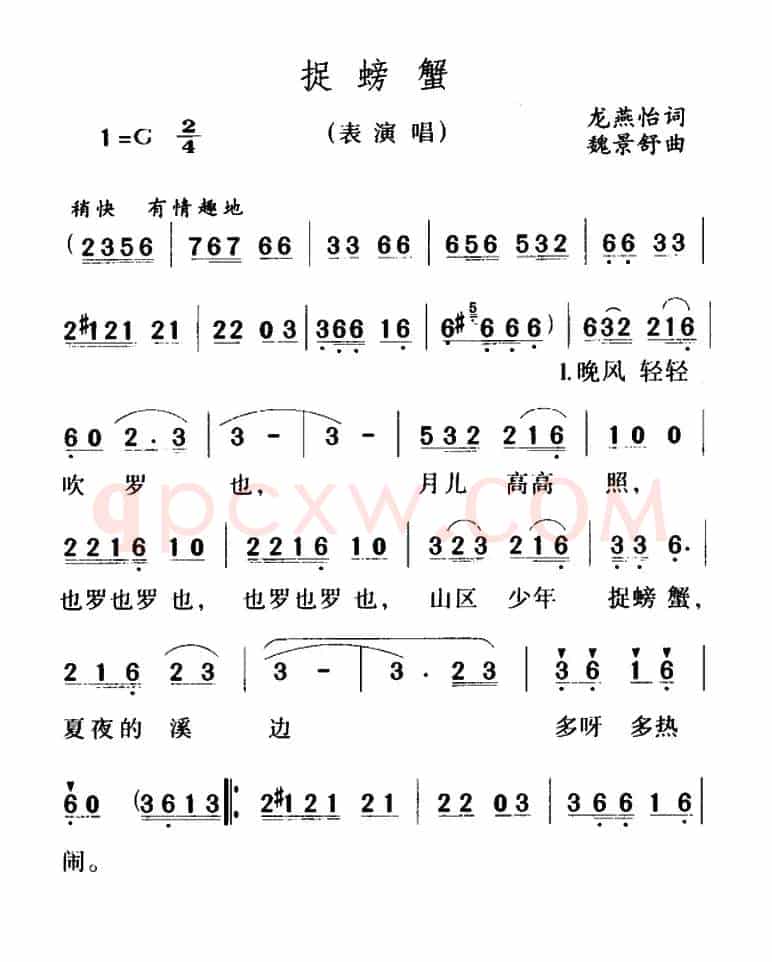 捉螃蟹
1=G 2/4 (表演唱) 龙燕怡词
魏景舒曲
稍快 有情趣地
(2356 | 767 66 | 33 66 | 656 532 | 66 33
2#121 21 | 22 03 | 366 16 | 6#5666) | 632 216 |
1.晚风 轻轻
60 2.3 | 3 - | 3 - | 532 216 | 100
吹 罗 也, 月儿 高高 照,
2216 10 | 2216 10 | 323 216 | 33 6. |
也罗也罗 也, 也罗也罗 也, 山区 少年 捉螃 蟹,
216 23 | 3 - | 3. 23 | 36 16 |
夏夜的 溪 边 多呀 多热
60 (3613 :| 2#121 21 | 22 03 | 366 16 |
闹。
qpcxw.COM